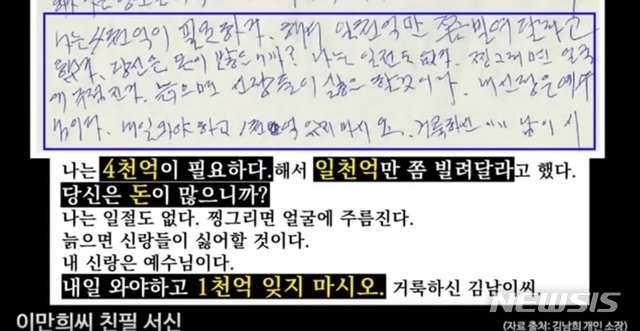 나는 4천억이 필요하다. 해서 일천억만 쫌 빌려달라고
했다. 당신은 돈이 많으니까? 나는 일전도 없다. 찡그리면 얼굴
에 주름진다. 늙으면 신랑들이 싫어 할것이다. 내 신랑은 예수
님이다. 내일 와야 하고 1천억 잊지 마시오. 거룩하신 남이 시
나는 4천억이 필요하다.해서 일천억만 쫌 빌려달라고 했다.
당신은 돈이 많으니까?
나는 일절도 없다. 찡그리면 얼굴에 주름진다.
늙으면 신랑들이 싫어할 것이다.
내 신랑은 예수님이다.
내일 와야하고 1천억 잊지 마시오. 거룩하신 김남이씨.
NEWSIS
이만희씨 친필 서신
(자료 출처: 김남희 개인 소장)